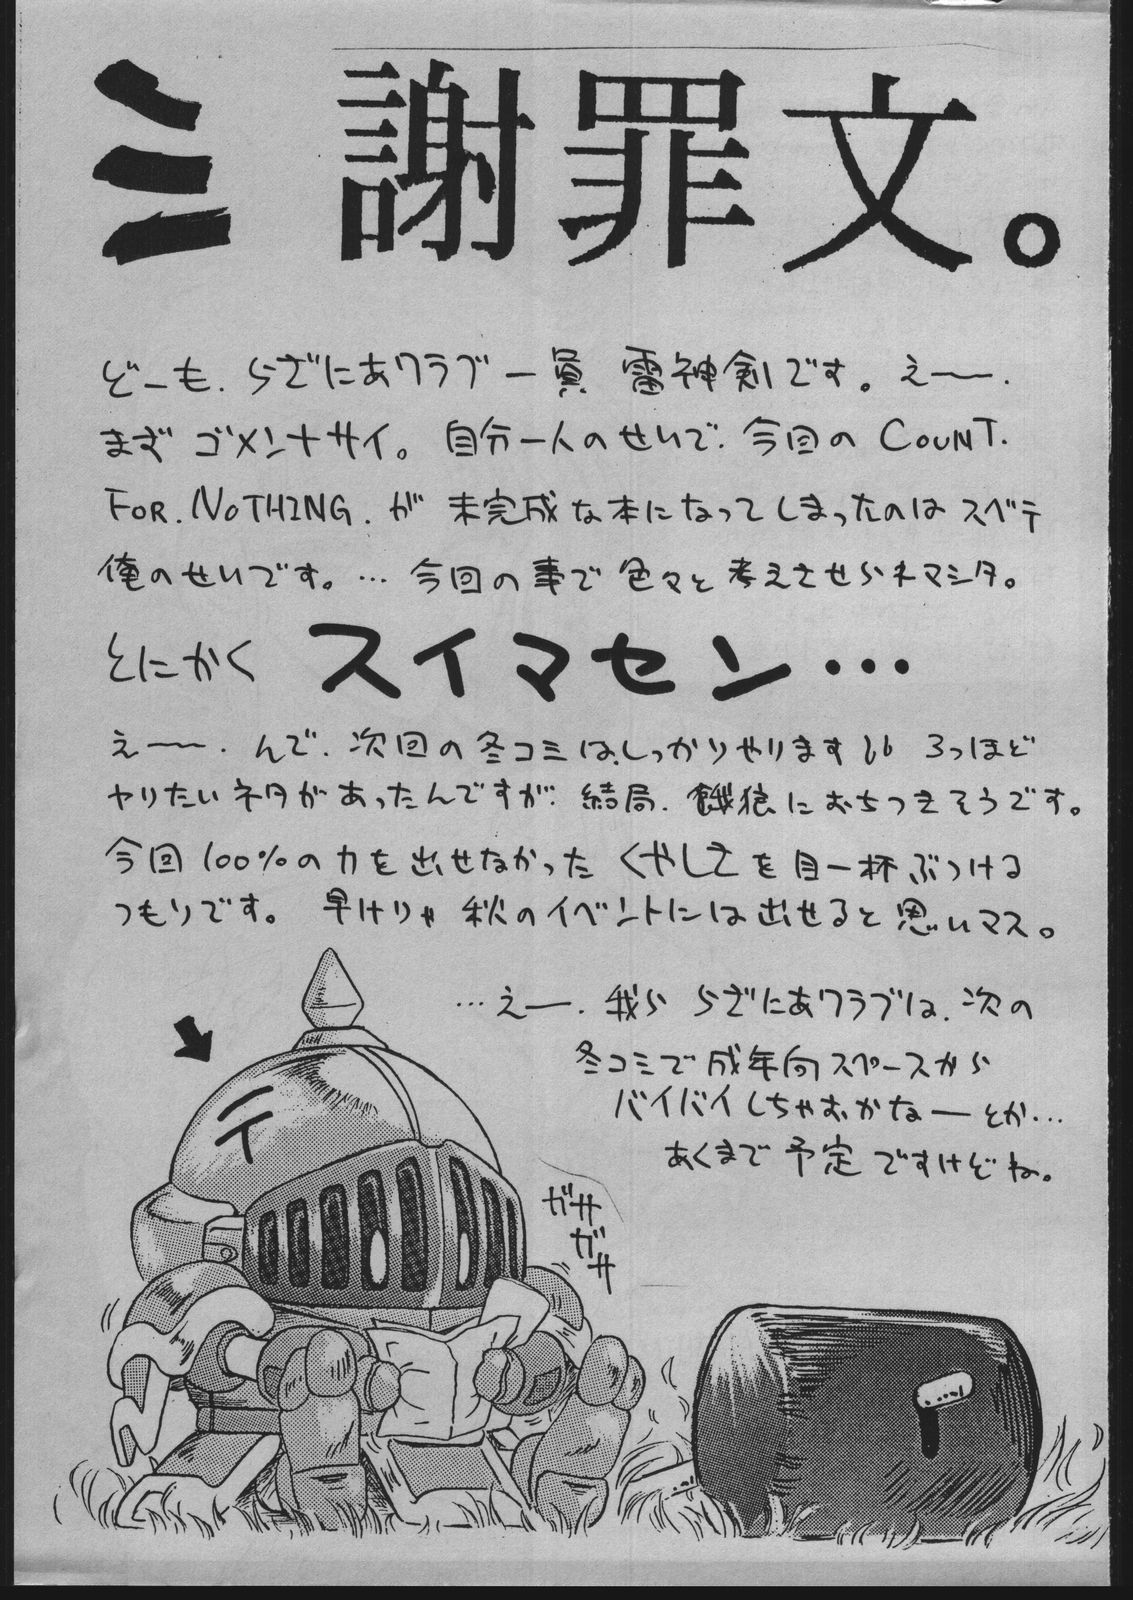 ミ 謝罪文。
どーも、らざにあクラブ一員 雷神剣です。え〜〜、
まず ゴメンナサイ。自分一人のせいで、今回の COUNT.
FOR. NOTHING. が 未完成な本になってしまったのは スベテ
俺のせいです。… 今回の事で 色々と 考えさせられマシタ。
とにかく スイマセン…
え〜〜、んで、次回の冬コミは、しっかりやります 3つほど
ヤリたいネタがあったんですが、結局、餓狼におちつきそうです。
今回 100%の力を出せなかった くやしさを目一杯ぶつける
つもりです。 早けりゃ 秋のイベントには出せると思いマス。
…えー、我ら らざにあクラブは、次の
冬コミで成年向スペースから
バイバイしちゃおかなーとか…
あくまで 予定 ですけどね。
テ
ガサ
ガサ